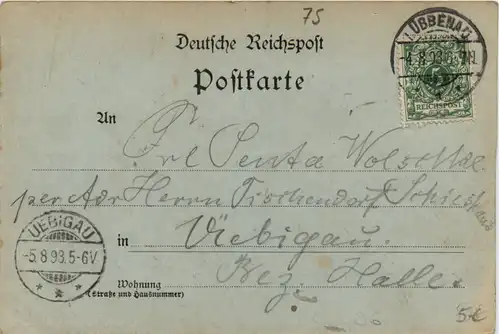 75
LÜBBENAU
-4.8.98.6-7N.
REICHSPOST
Deutsche Reichspost
Postkarte
An
Frl Penta
per Adr Herrn Tischendorf
UEBIGAU
-5.8.98.5-6V
in Uebigau.
Bez. Halle.
Wohnung
(Straße und Hausnummer)
5.€